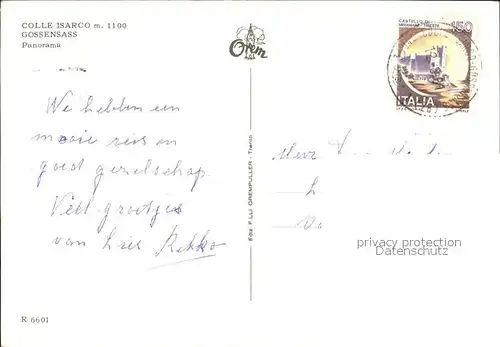 COLLE ISARCO m. 1100
GOSSENSASS
Panorama
We hebben een
mooie reis en
goed gezelschap
Veel groetjes
van Lies Rekko
R 6601
Orem
Ediz. F.LLI OREMPULLER - Trento
CASTELLO DI
MIRAMARE - TRIESTE
150
ITALIA
Mevr
privacy protection
Datenschutz